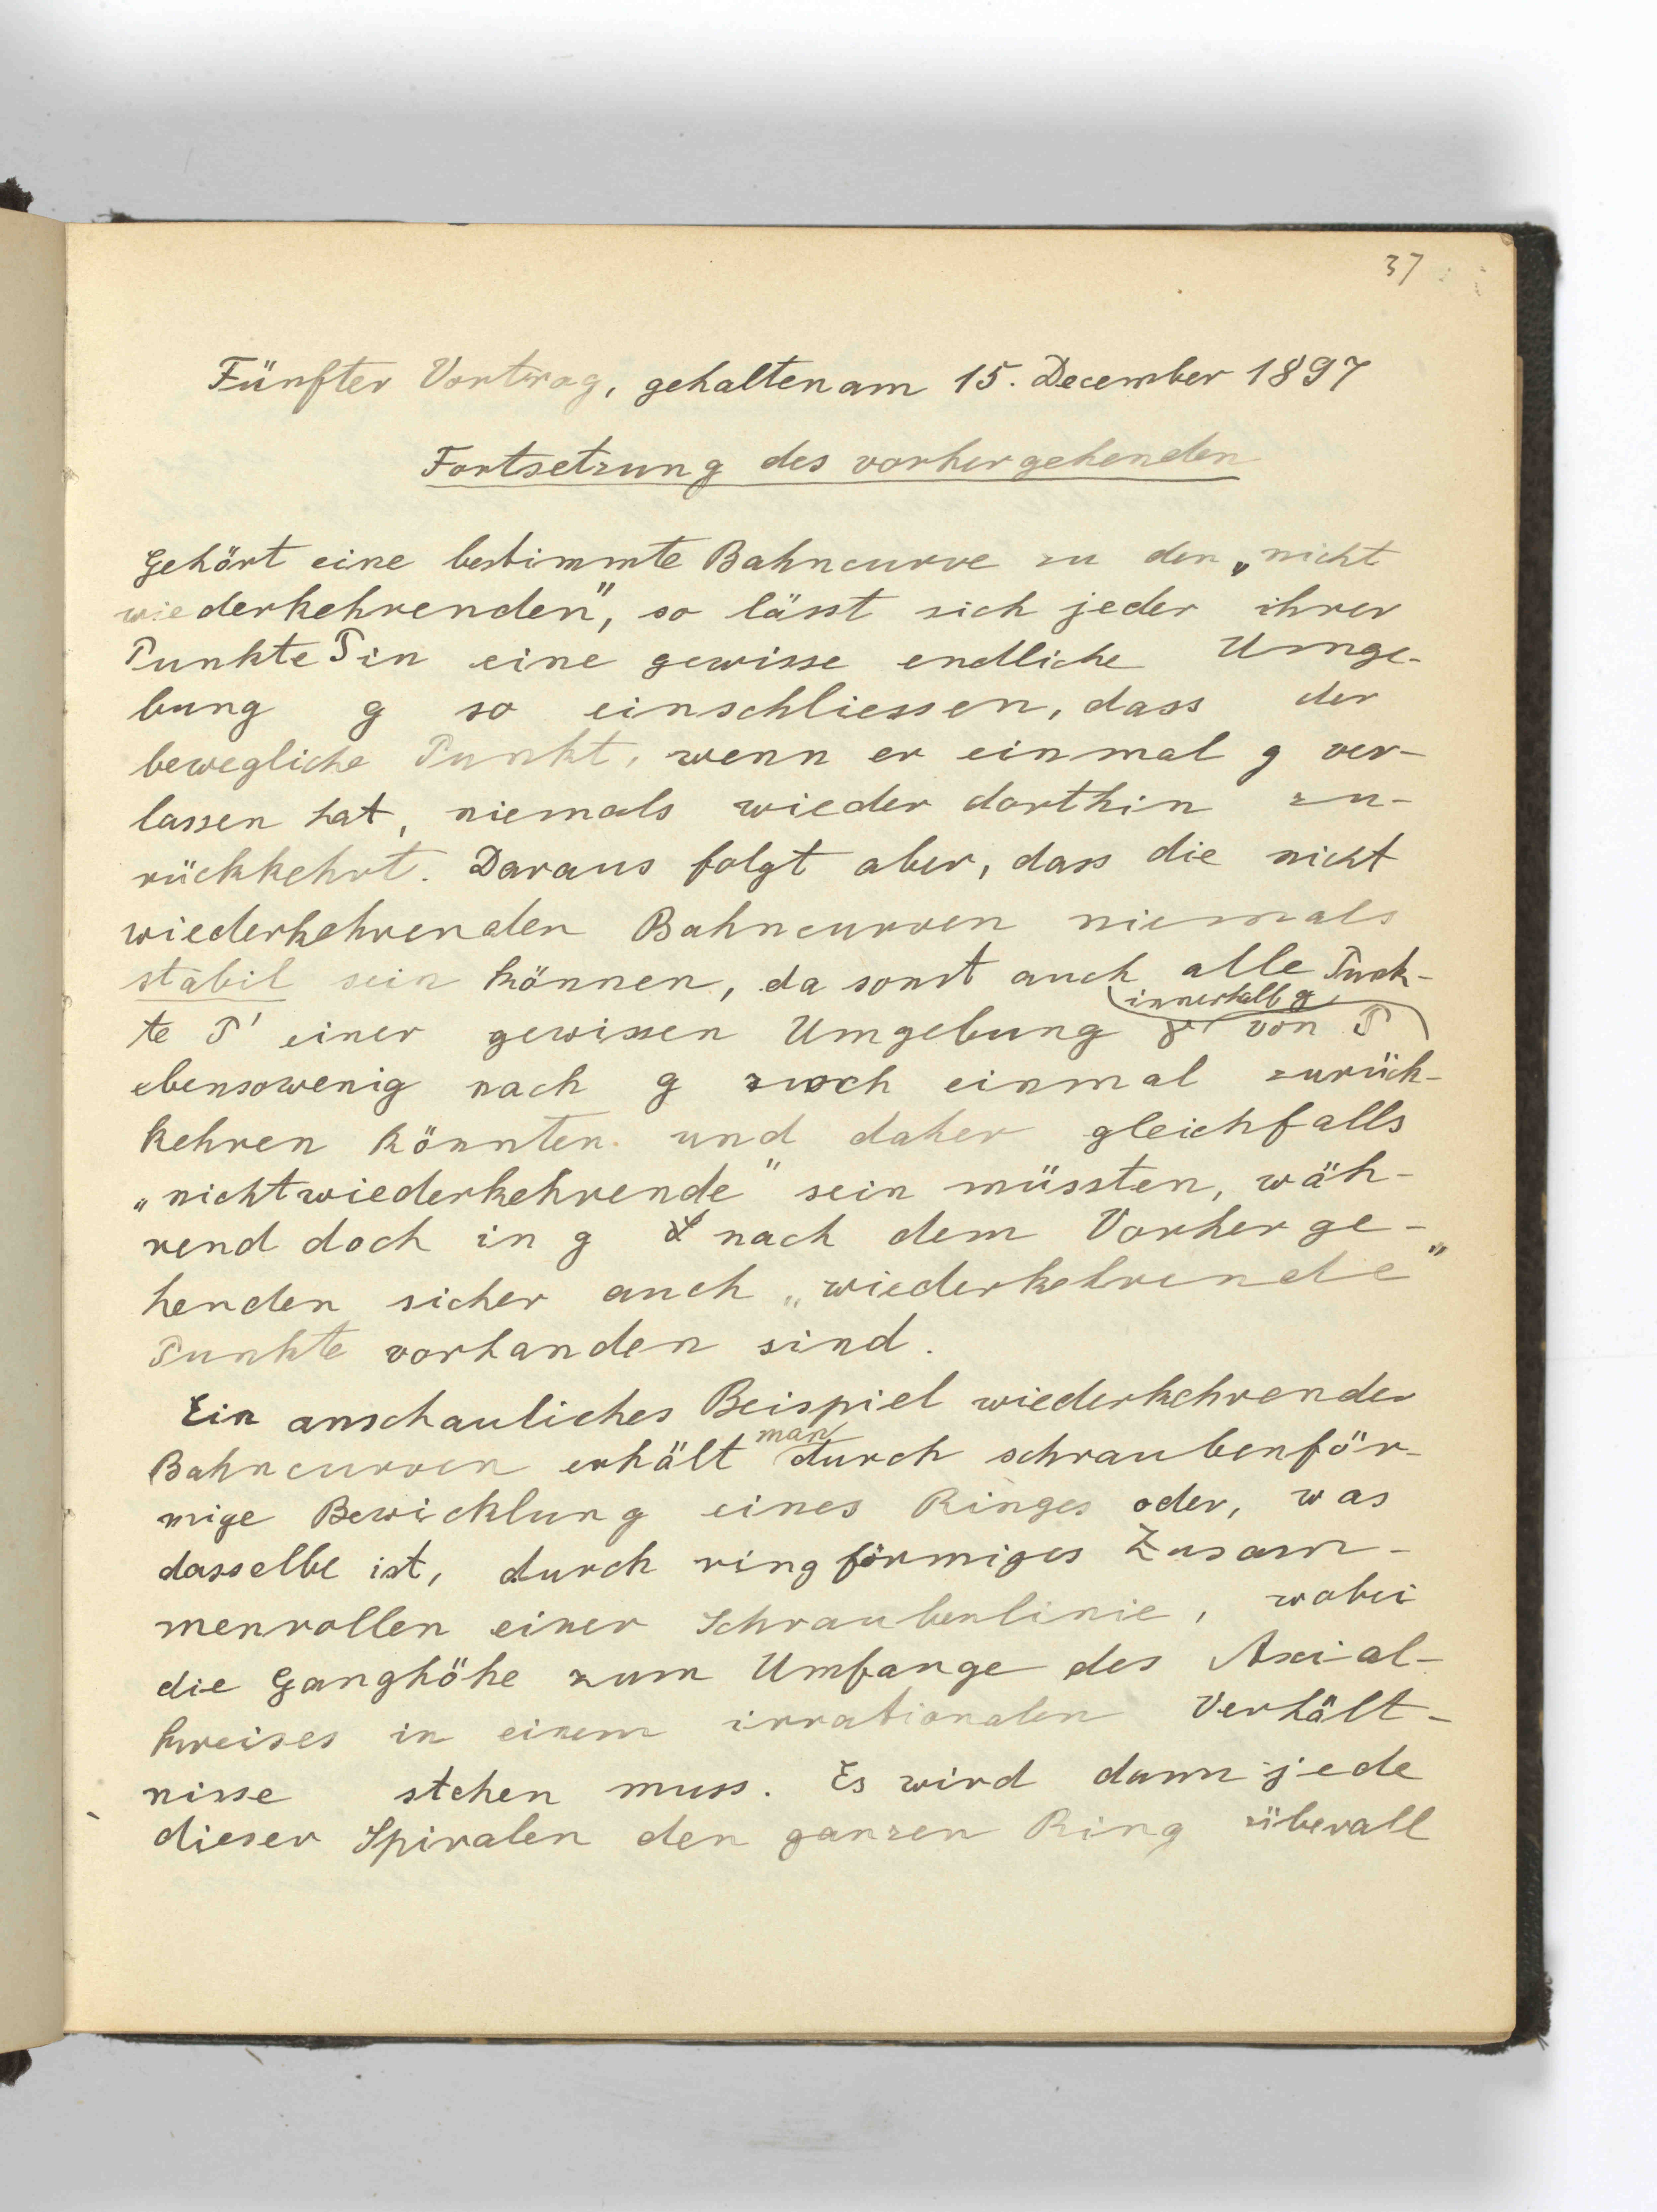 37
Fünfter Vortrag, gehalten am 15. December 1897
Fortsetzung des vorhergehenden
Gehört eine bestimmte Bahncurve zu den „nicht
wiederkehrenden", so lässt sich jeder ihrer
Punkte P in eine gewisse endliche Umge-
bung g so einschliessen, dass der
bewegliche Punkt, wenn er einmal g ver-
lassen hat, niemals wieder dorthin zu-
rückkehrt. Daraus folgt aber, dass die nicht
wiederkehrenden Bahncurven niemals
stabil sein können, da sonst auch alle Punk-
innerhalb g
te P' einer gewissen Umgebung von P
ebensowenig nach g noch einmal zurück-
kehren könnten und daher gleichfalls
„nichtwiederkehrende" sein müssten, wäh-
rend doch in g nach dem Vorherge-
henden sicher auch „wiederkehrende"
Punkte vorhanden sind.
Ein anschauliches Beispiel wiederkehrender
Bahncurven erhält man durch schraubenför-
mige Bewicklung eines Ringes oder, was
dasselbe ist, durch ringförmiges Zusam-
menrollen einer Schraubenlinie, wobei
die Ganghöhe zum Umfange des Axial-
kreises in einem irrationalen Verhält-
nisse stehen muss. Es wird dann jede
dieser Spiralen den ganzen Ring überall